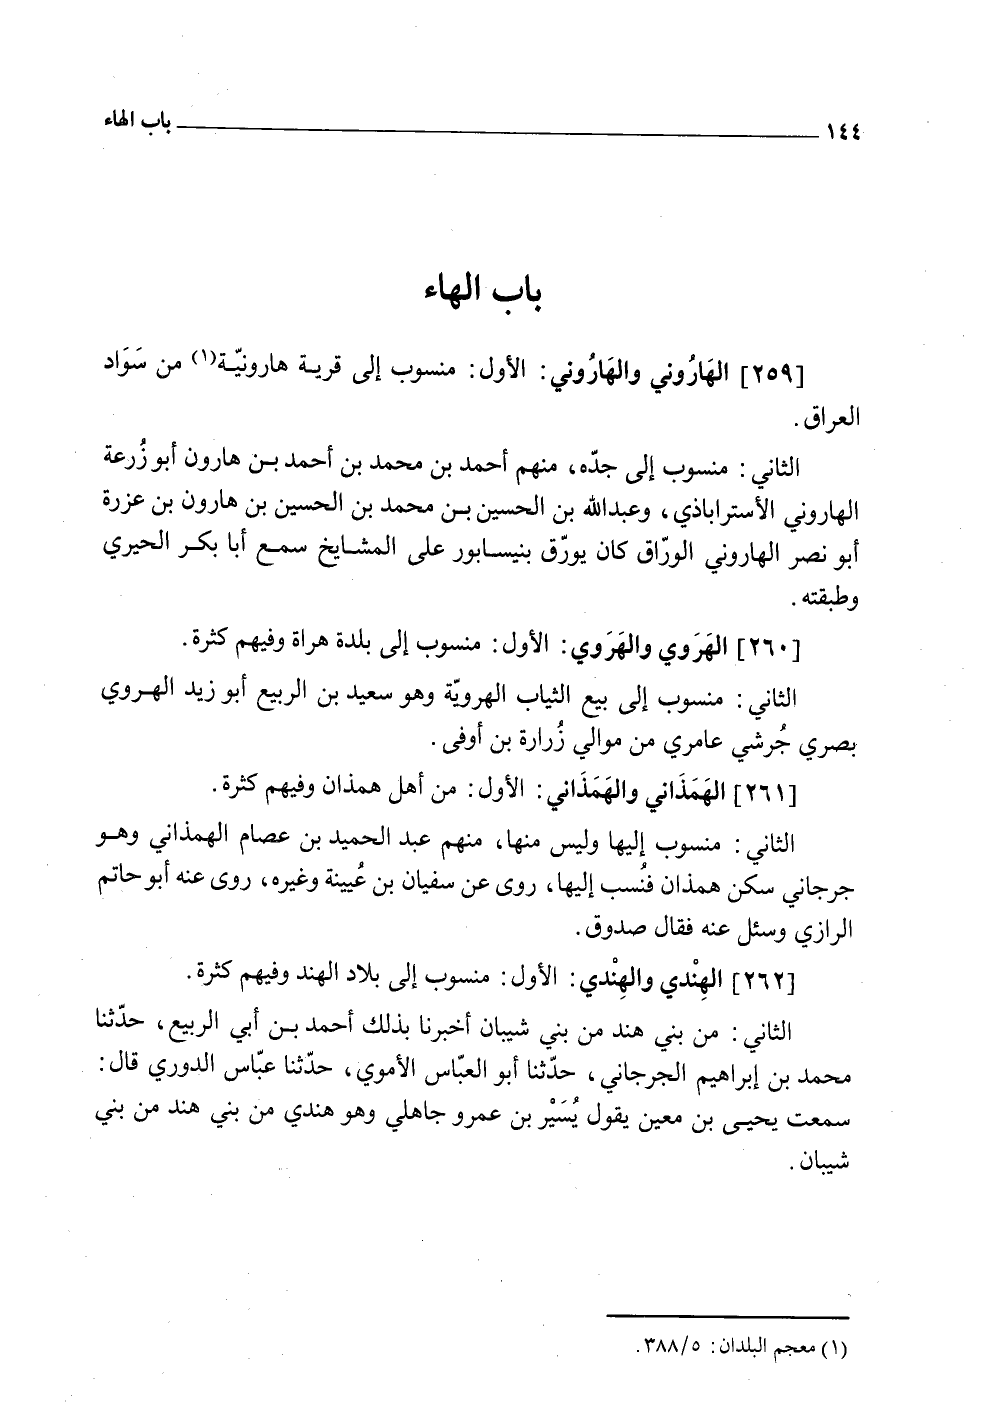 ١٤٤ باب الهاء
باب الهاء
[٢٥٩] الهَارُوني والهَارُوني: الأول: منسوب إلى قرية هارونيّة(١) من سَوَاد
العراق.
الثاني: منسوب إلى جدّه، منهم أحمد بن محمد بن أحمد بن هارون أبو زُرعة
الهاروني الأستراباذي، وعبدالله بن الحسين بن محمد بن الحسين بن هارون بن عزرة
أبو نصر الهاروني الورّاق كان يورّق بنيسابور على المشايخ سمع أبا بكر الحيري
وطبقته.
[٢٦٠] الهَرَوي والهَرَوي: الأول: منسوب إلى بلدة هراة وفيهم كثرة.
الثاني: منسوب إلى بيع الثياب الهرويّة وهو سعيد بن الربيع أبو زيد الهروي
بصري جُرشي عامري من موالي زُرارة بن أوفى.
[٢٦١] الهَمَذَاني والهَمَذَاني: الأول: من أهل همذان وفيهم كثرة.
الثاني: منسوب إليها وليس منها، منهم عبد الحميد بن عصام الهمذاني وهو
جرجاني سكن همذان فنُسب إليها، روى عن سفيان بن عُيينة وغيره، روى عنه أبو حاتم
الرازي وسئل عنه فقال صدوق.
[٢٦٢] الهِنْدي والهِنْدي: الأول: منسوب إلى بلاد الهند وفيهم كثرة.
الثاني: من بني هند من بني شيبان أخبرنا بذلك أحمد بن أبي الربيع، حدّثنا
محمد بن إبراهيم الجرجاني، حدّثنا أبو العبّاس الأموي، حدّثنا عبّاس الدوري قال:
سمعت يحيى بن معين يقول يُسَيْر بن عمرو جاهلي وهو هندي من بني هند من بني
شيبان.
(١) معجم البلدان: ٣٨٨/٥.